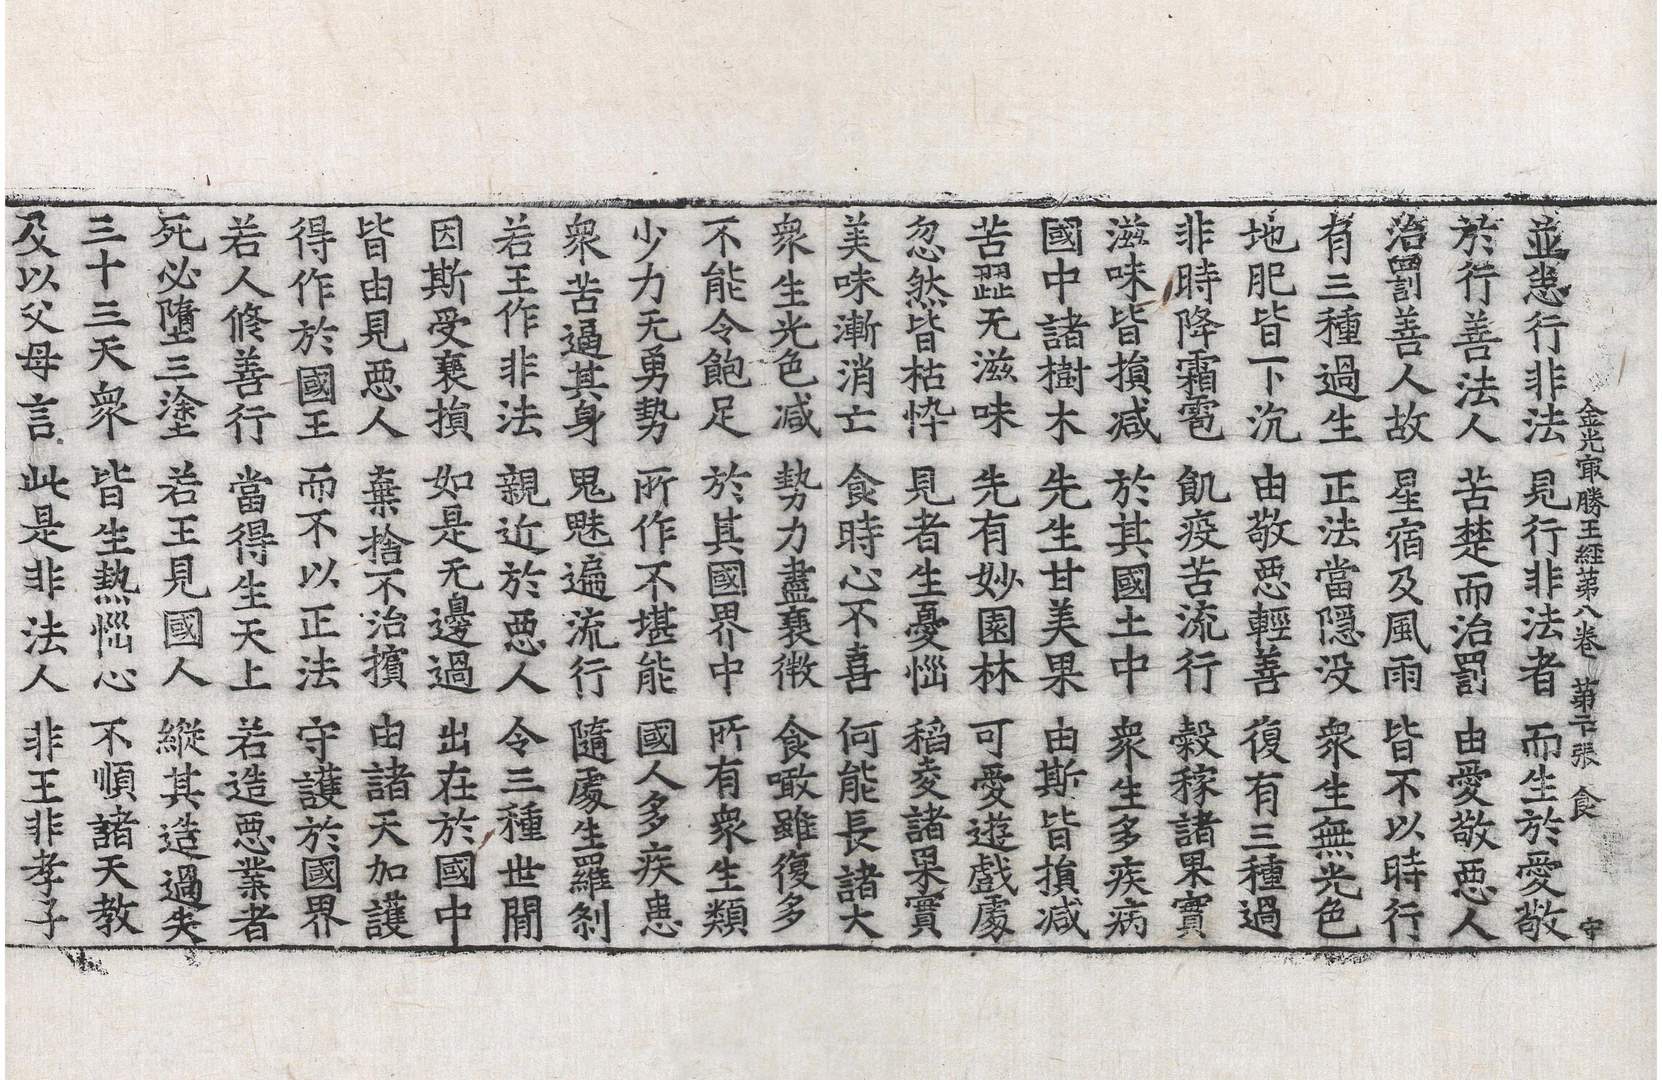 金光㝡勝王經第八卷 第二十張 食 守
並悉行非法 見行非法者 而生於愛敬
於行善法人 苦楚而治罰 由愛敬惡人
治罰善人故 星宿及風雨 皆不以時行
有三種過生 正法當隱没 衆生無光色
地肥皆下沉 由敬惡輕善 復有三種過
非時降霜雹 飢疫苦流行 穀稼諸果實
滋味皆損减 於其國土中 衆生多疾病
國中諸樹木 先生甘美果 由斯皆損减
苦澀无滋味 先有妙園林 可愛遊戲處
忽然皆枯悴 見者生憂惱 稻麦諸果實
美味漸消亡 食時心不喜 何能長諸大
衆生光色减 勢力盡衰微 食噉雖復多
不能令飽足 於其國界中 所有衆生類
少力无勇勢 所作不堪能 國人多疾患
衆苦逼其身 鬼魅遍流行 隨處生羅刹
若王作非法 親近於惡人 令三種世間
因斯受衰損 如是无邊過 出在於國中
皆由見惡人 棄捨不治擯 由諸天加護
得作於國王 而不以正法 守護於國界
若人修善行 當得生天上 若造惡業者
死必墮三塗 若王見國人 縱其造過失
三十三天衆 皆生熱惱心 不順諸天教
及以父母言 此是非法人 非王非孝子